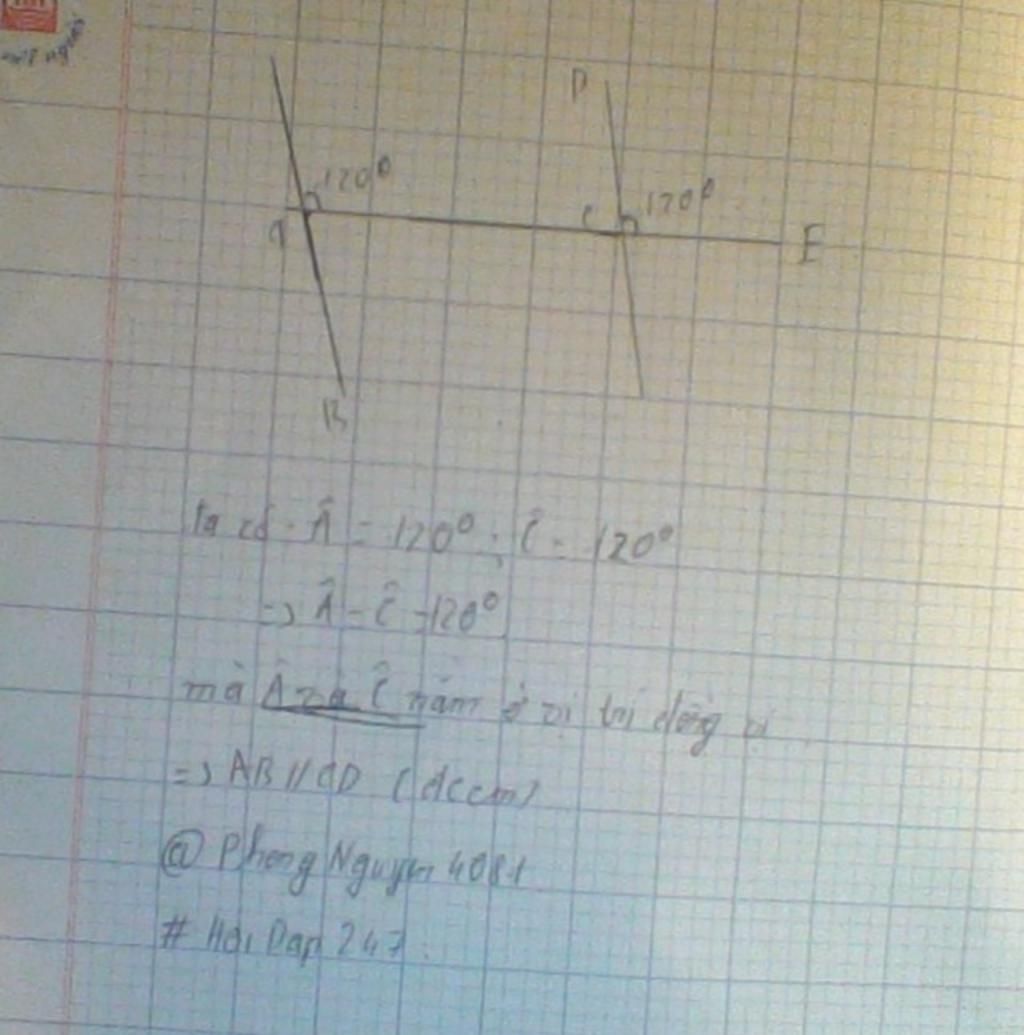 D
120⁰
120⁰
A
C
E
B
Ta có: Â = 120⁰; Ĉ = 120⁰
=> Â = Ĉ = 120⁰
mà Â và Ĉ nằm ở vị trí đồng vị
=> AB // CD (đccm)
@ Phong Nguyen 4081
# Hoi Dap 247